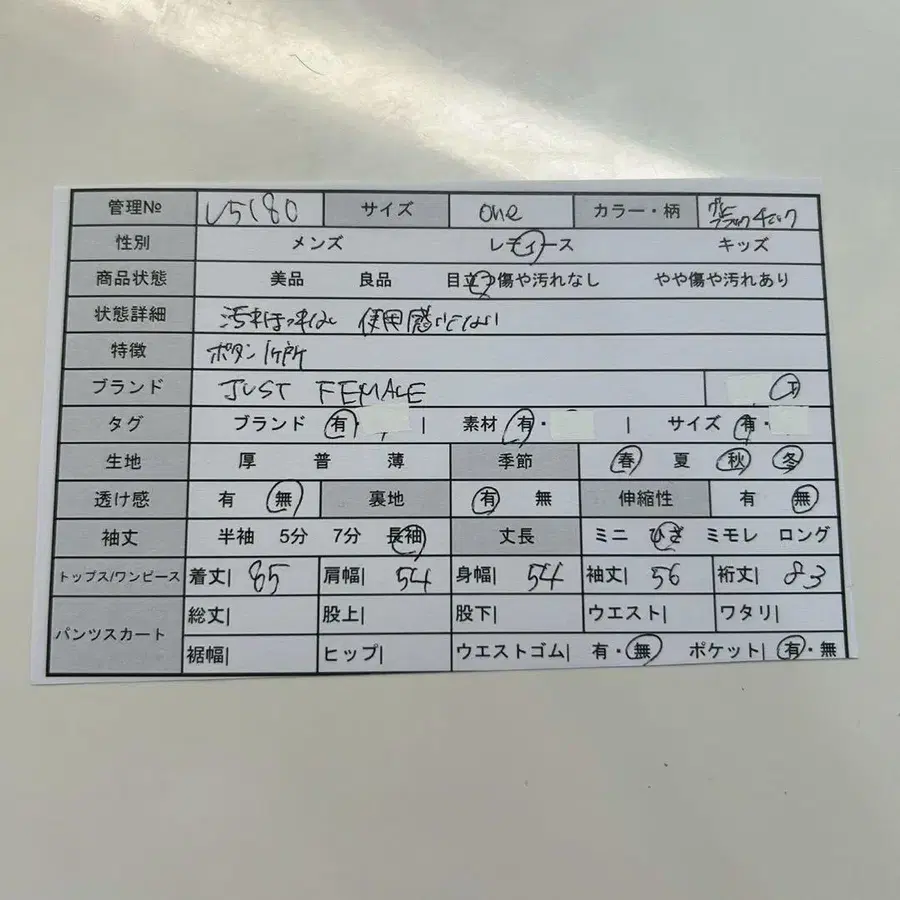 管理№ V5180 サイズ one カラー・柄 ブラックチェック
性別 メンズ レディース キッズ
商品状態 美品 良品 目立つ傷や汚れなし やや傷や汚れあり
状態詳細 汚れほつれなし 使用感
特徴 ボタン1ケ所
ブランド JUST FEMALE
タグ ブランド 有・ | 素材 有・ | サイズ 有・
生地 厚 普 薄 季節 春 夏 秋 冬
透け感 有 無 裏地 有 無 伸縮性 有 無
袖丈 半袖 5分 7分 長袖 丈長 ミニ ひざ ミモレ ロング
トップス/ワンピース 着丈| 85 肩幅| 54 身幅| 54 袖丈| 56 裄丈| 83
パンツスカート 総丈| 股上| 股下| ウエスト| ワタリ|
裾幅| ヒップ| ウエストゴム| 有・無 ポケット| 有・無